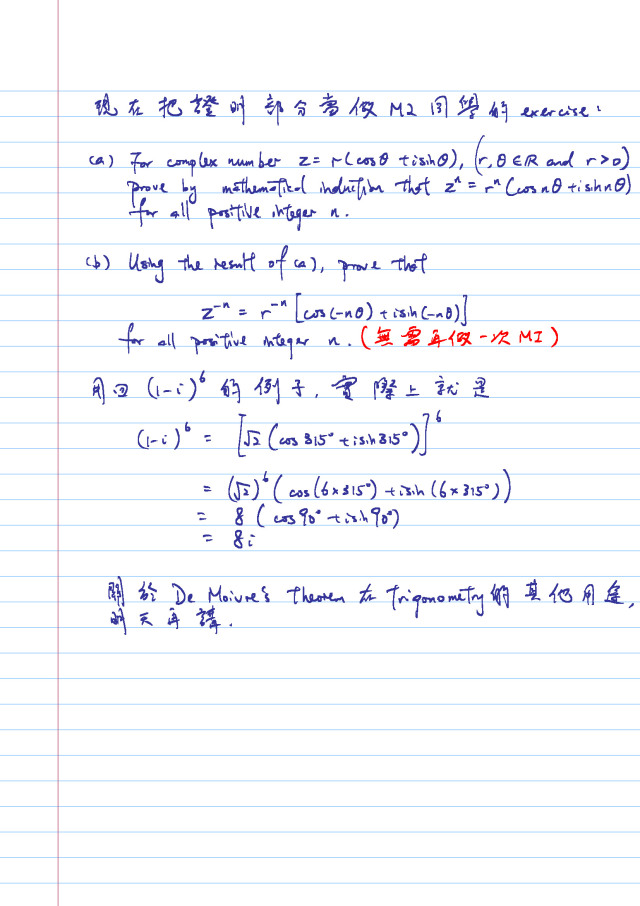 現在把證明部分當做 M2 同學的 exercise:
(a) For complex number z = r(cosθ + isinθ), (r, θ ∈ ℝ and r > 0)
prove by mathematical induction that zⁿ = rⁿ(cos nθ + isin nθ)
for all positive integer n.
(b) Using the result of (a), prove that
z⁻ⁿ = r⁻ⁿ [cos(-nθ) + isin(-nθ)]
for all positive integer n. (無需再做一次 MI)
用回 (1-i)⁶ 的例子, 實際上就是
(1-i)⁶ = [√2 (cos 315° + isin 315°)]⁶
= (√2)⁶ (cos(6×315°) + isin(6×315°))
= 8 (cos 90° + isin 90°)
= 8i
關於 De Moivre's Theorem 在 Trigonometry 的其他用途,
明天再講.